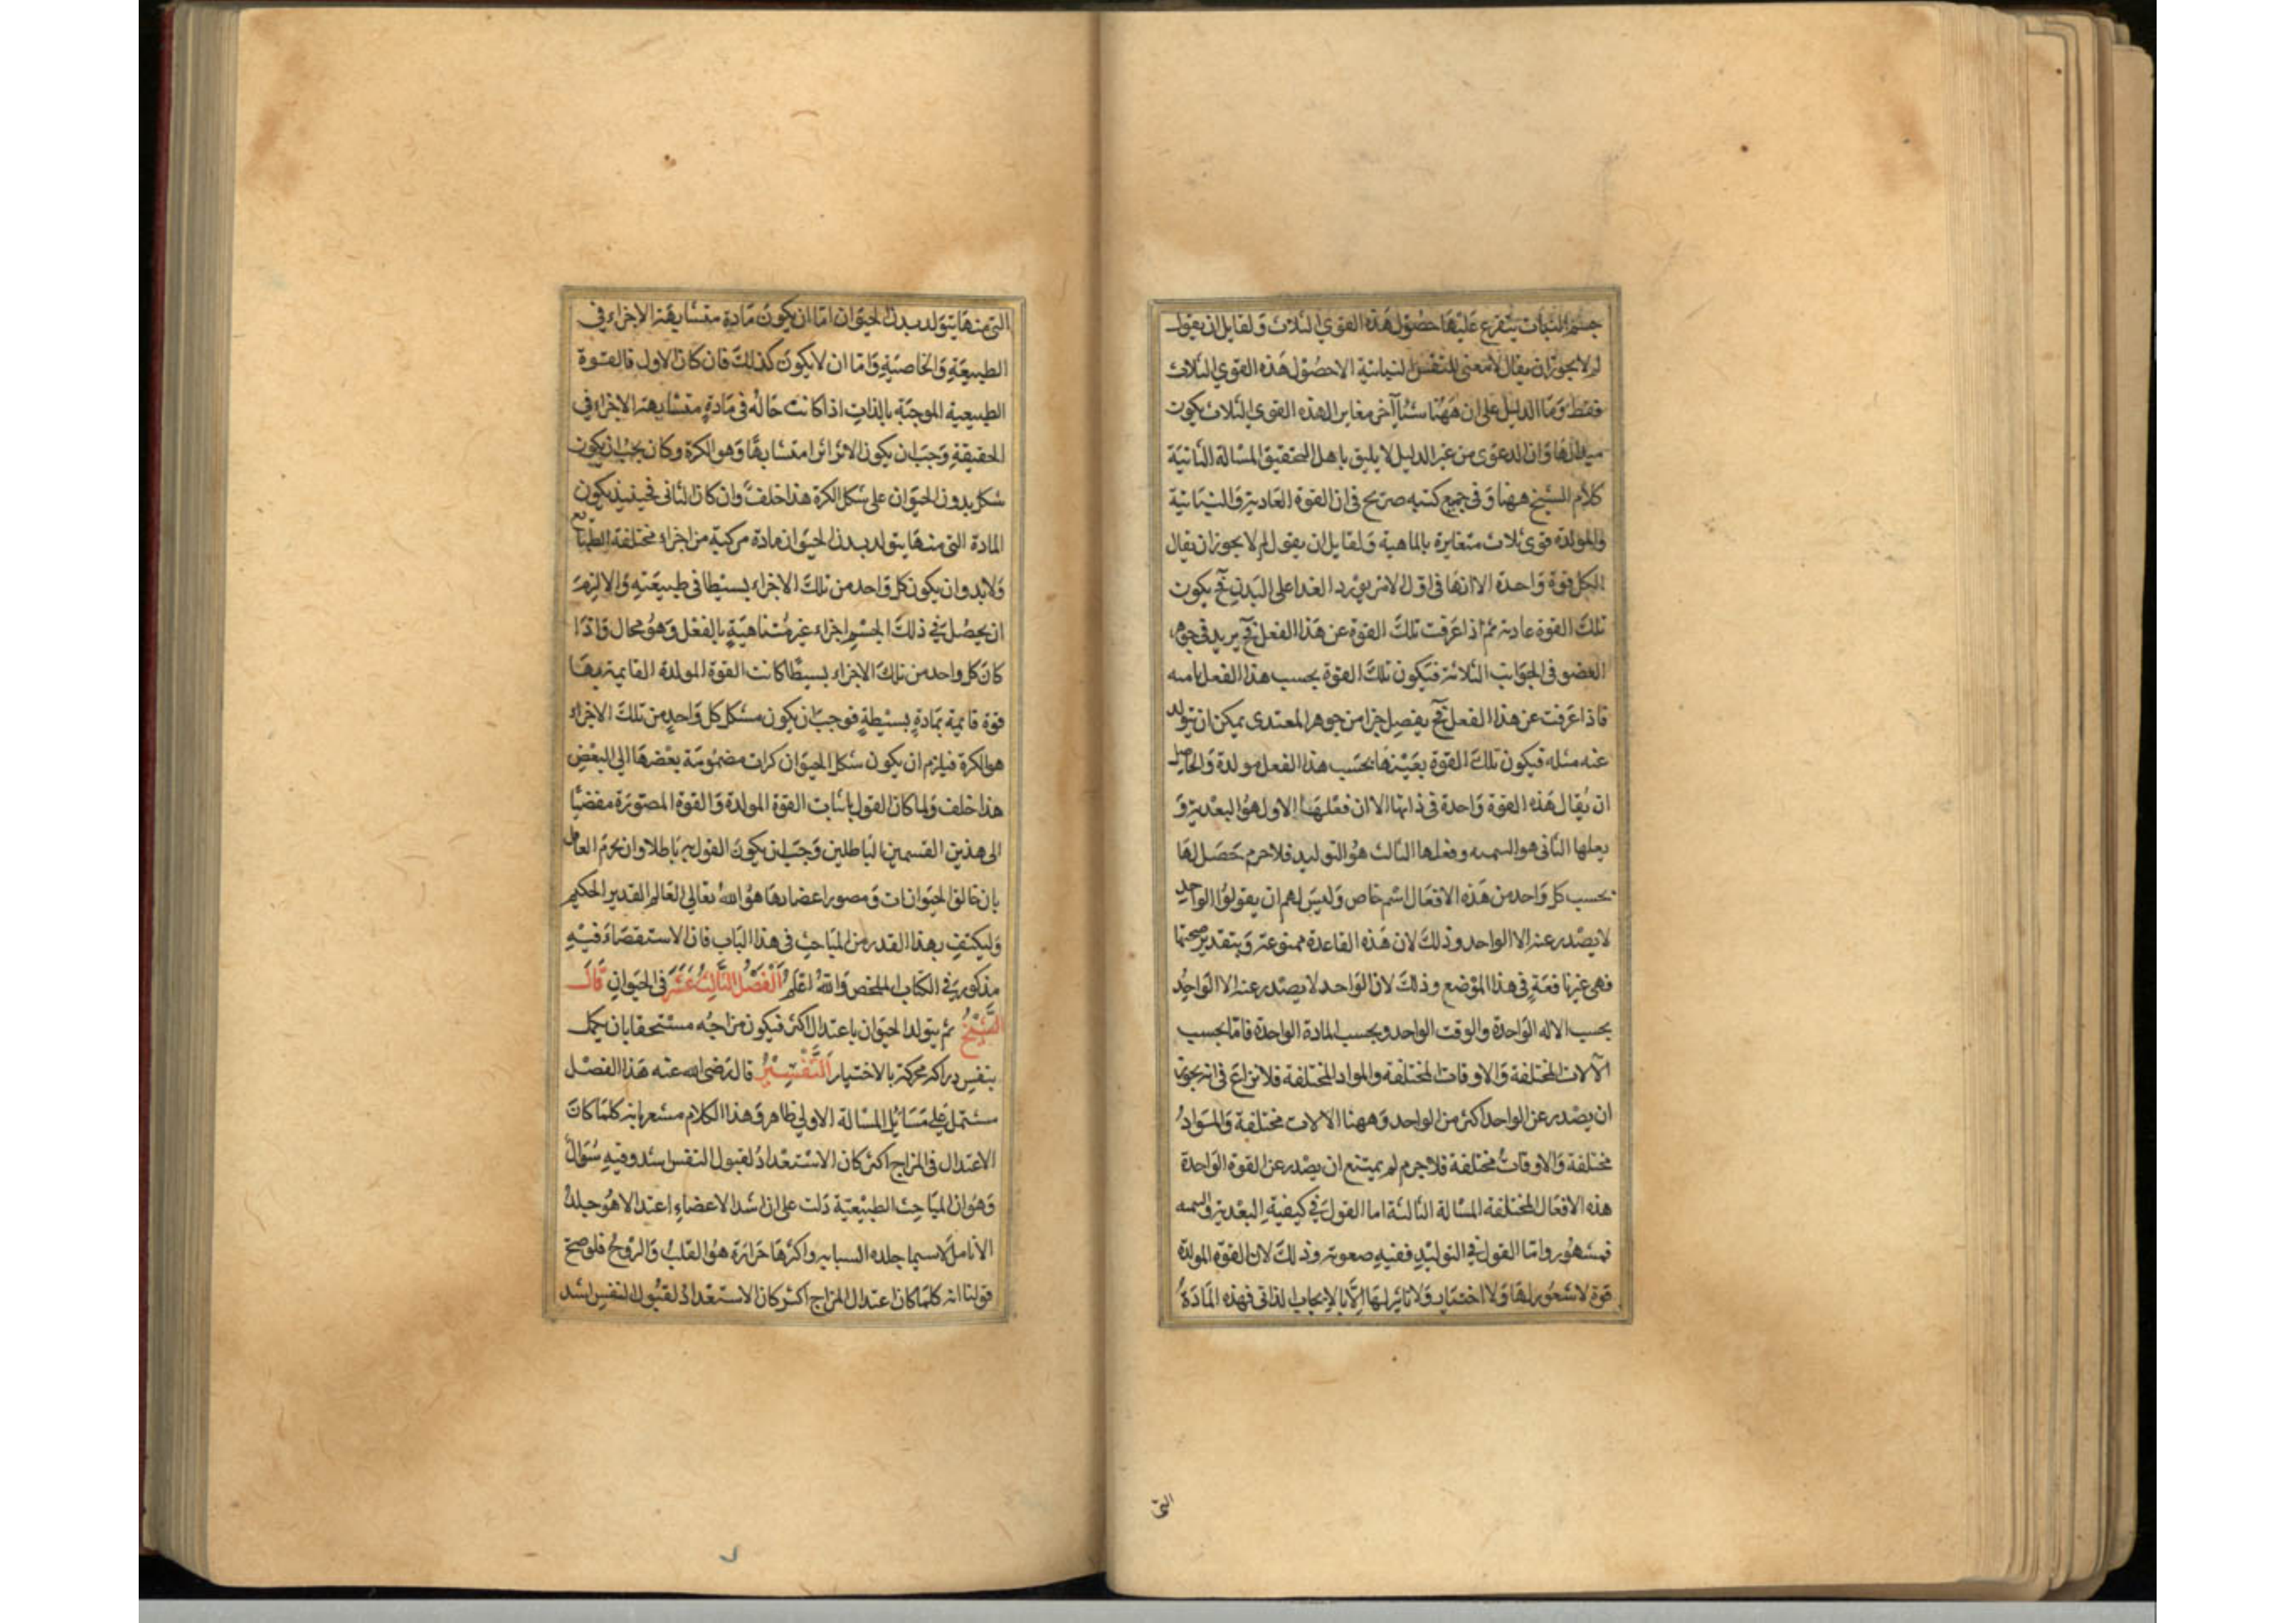 جسم النبات يتفرع عليها حصول هذه القوي الثلاث ولقايل ان يقول
لم لا يجوز ان يقال لا معنى للنفس النباتية الا حصول هذه القوي الثلاث
فقط وما الدليل على ان ههنا شيأ آخر مغاير الهذه القوي الثلاث يكون
مبدالها وان الدعوى من غير الدليل لا يليق باهل التحقيق المسالة الثانية
كلام الشيخ ههنا وفى جميع كتبه صريح فى ان القوة العادية والنباتية
والمولدة قوى ثلاث متغايرة بالماهية ولقايل ان يقول لم لا يجوز ان يقال
الكل قوة واحدة الا انها فى اول الامر يورد الغدا على البدن فح يكون
تلك القوة عادية ثم اذا عرفت تلك القوة عن هذا الفعل فح يزيد فى جوهر
العضو فى الجوانب الثلاثة فيكون تلك القوة بحسب هذا الفعل نامية
فاذا عرفت عن هذا الفعل فح يفصل جزا من جوهر المعتدى يمكن ان يتولد
عنه مثله فيكون تلك القوة بعينها بحسب هذا الفعل مولدة والحاصل
ان يقال هذه القوة واحدة فى ذاتها الا ان فعلها الاول هو البعدية و
بعلها الثانى هو السميه وفعلها الثالث هو التوليد فلا جرم حصل لها
بحسب كل واحد من هذه الافعال اسم خاص وليس لهم ان يقولوا الواحد
لا يصدر عنه الا الواحد وذلك لان هذه القاعدة ممنوعة وبتقدير صحتها
فهى غير نافعة فى هذا الموضع وذلك لان الواحد لا يصدر عنه الا الواحد
بحسب الاله الواحدة والوقت الواحد وبحسب المادة الواحدة فاما بحسب
الآلات المختلفة والاوقات المختلفة والمواد المختلفة فلا نزاع فى انه يجوز
ان يصدر عن الواحد اكثر من الواحد وههنا الالات مختلفة والمواد
مختلفة والاوقات مختلفة فلا جرم لم يمتنع ان يصدر عن القوة الواحدة
هذه الافعال المختلفة المسالة الثالثة اما القول فى كيفية البعدية والسميه
فمشهور واما القول فى التوليد ففيه صعوبة وذلك لان القوة المولدة
قوة لا شعور لها ولا اختيار ولا تاثير لها الا بالايجاب الذاتى فهذه المادة
التى
التى منها يتولد بدن الحيوان اما ان يكون مادة متشابهة الاجزاء فى
الطبيعة والخاصية واما ان لا يكون كذلك فان كان الاول فالقوة
الطبيعية الموجبة بالذات اذا كانت حالة فى مادة متشابهة الاجزاء فى
الحقيقة وجب ان يكون الاثر اثرا متشابها وهو الكرة وكان يجب ان يكون
شكل بدون الحيوان على شكل الكرة هذا خلف وان كان الثانى فحينئذ يكون
المادة التى منها يتولد بدن الحيوان مادة مركبة من اجزاء مختلفة الطبايع
ولابد وان يكون كل واحد من تلك الاجزاء بسيطا فى طبيعته والا لزم
ان يحصل فى ذلك الجسم اجزاء غير متناهية بالفعل وهو محال واذا
كان كل واحد من تلك الاجزاء بسيطا كانت القوة المولدة القايمة بها
قوة قايمة بمادة بسيطة فوجب ان يكون مشكل كل واحد من تلك الاجزاء
هو الكرة فيلزم ان يكون شكل الحيوان كرات مضمومة بعضها الى البعض
هذا خلف ولما كان القول باثبات القوة المولدة والقوة المصورة مفضيا
الى هذين القسمين الباطلين وجب ان يكون القول به باطلا وان يجزم العاقل
بان خالق الحيوانات ومصور اعضادها هو الله تعالى العالم القدير الحكيم
وليكتف بهذا القدر من المباحث فى هذا الباب فان الاستقصاء فيه
مذكور فى الكتاب الملخص والله اعلم الفصل الثالث عشر فى الحيوان قال
الشيخ ثم يتولد الحيوان باعتدال اكثر فيكون مزاجه مستحقا بان يكمل
بنفس دراكة محركة بالاختيار التفسير قال رضى الله عنه هذا الفصل
مشتمل على مسائل المسالة الاولى ظاهر وهذا الكلام مشعر بانه كلما كان
الاعتدال فى المزاج اكثر كان الاستعداد لقبول النفس اشد وفيه سؤال
وهو ان المباحث الطبيعية دلت على ان اشد الاعضاء اعتدالا هو جلد
الانامل لاسيما جلده السبابه واكثرها حرارة هو القلب والروح فلو صح
قولنا انه كلما كان اعتدال المزاج اكثر كان الاستعداد لقبول النفس اشد